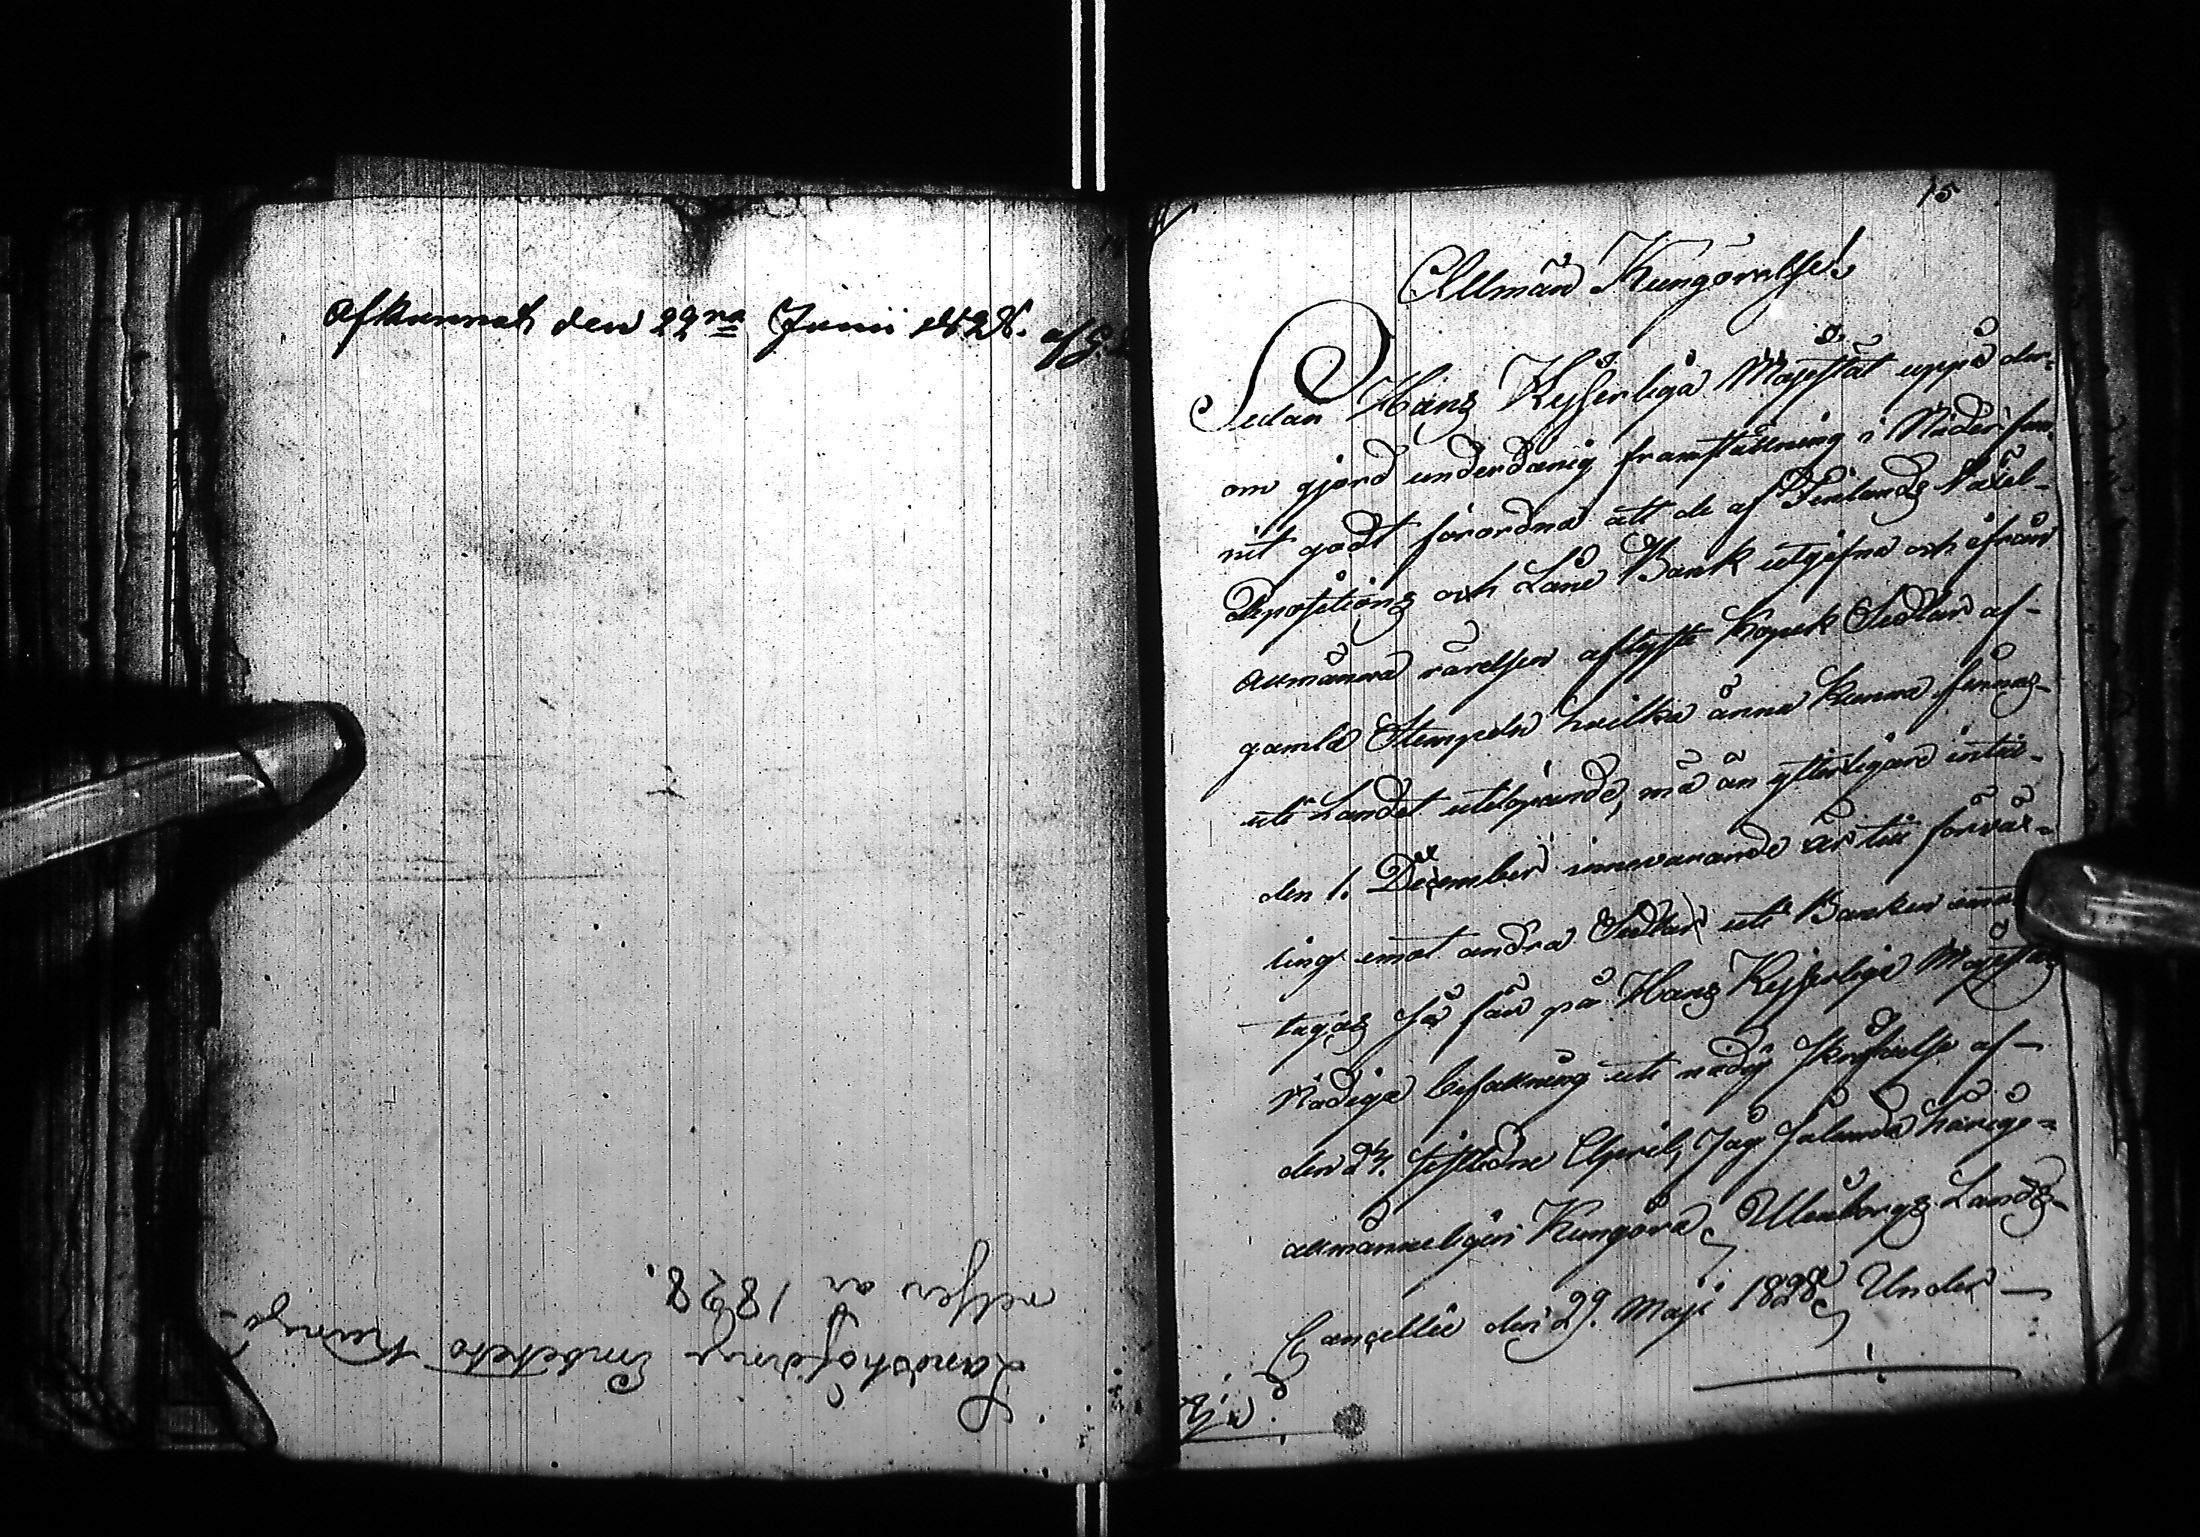 Afkunnat den 22na Junii 1828.
Landshöfdinge Embetets Kungö-
relser år 1828.
15
Allmän Kungörelse!
Sedan Hans Kejserliga Majestät uppå der-
om gjord underdånig framställning i Nåder fun-
nit godt förordna att de af Finlands Växel-
Depositions och Låne Bank utgifne och ifrån
allmänna rörelsen aflyste Kopek Sedlar af-
gamla Stempeln hvilka ännu kunna finnas-
uti Landet utelöpande, må än ytterligare intill-
den 1. December innevarande år till förvax-
ling emot andra Sedlar uti Banken
tagas så får på Hans Kejserliga Majestäts
Nådiga befallning uti nådig skrifvelse af-
den 24. sistledne April, Jag sålunda härige-
allmänneligen Kungöra, Uleåborgs Lands-
Cancellie den 29. Maji 1828, Under